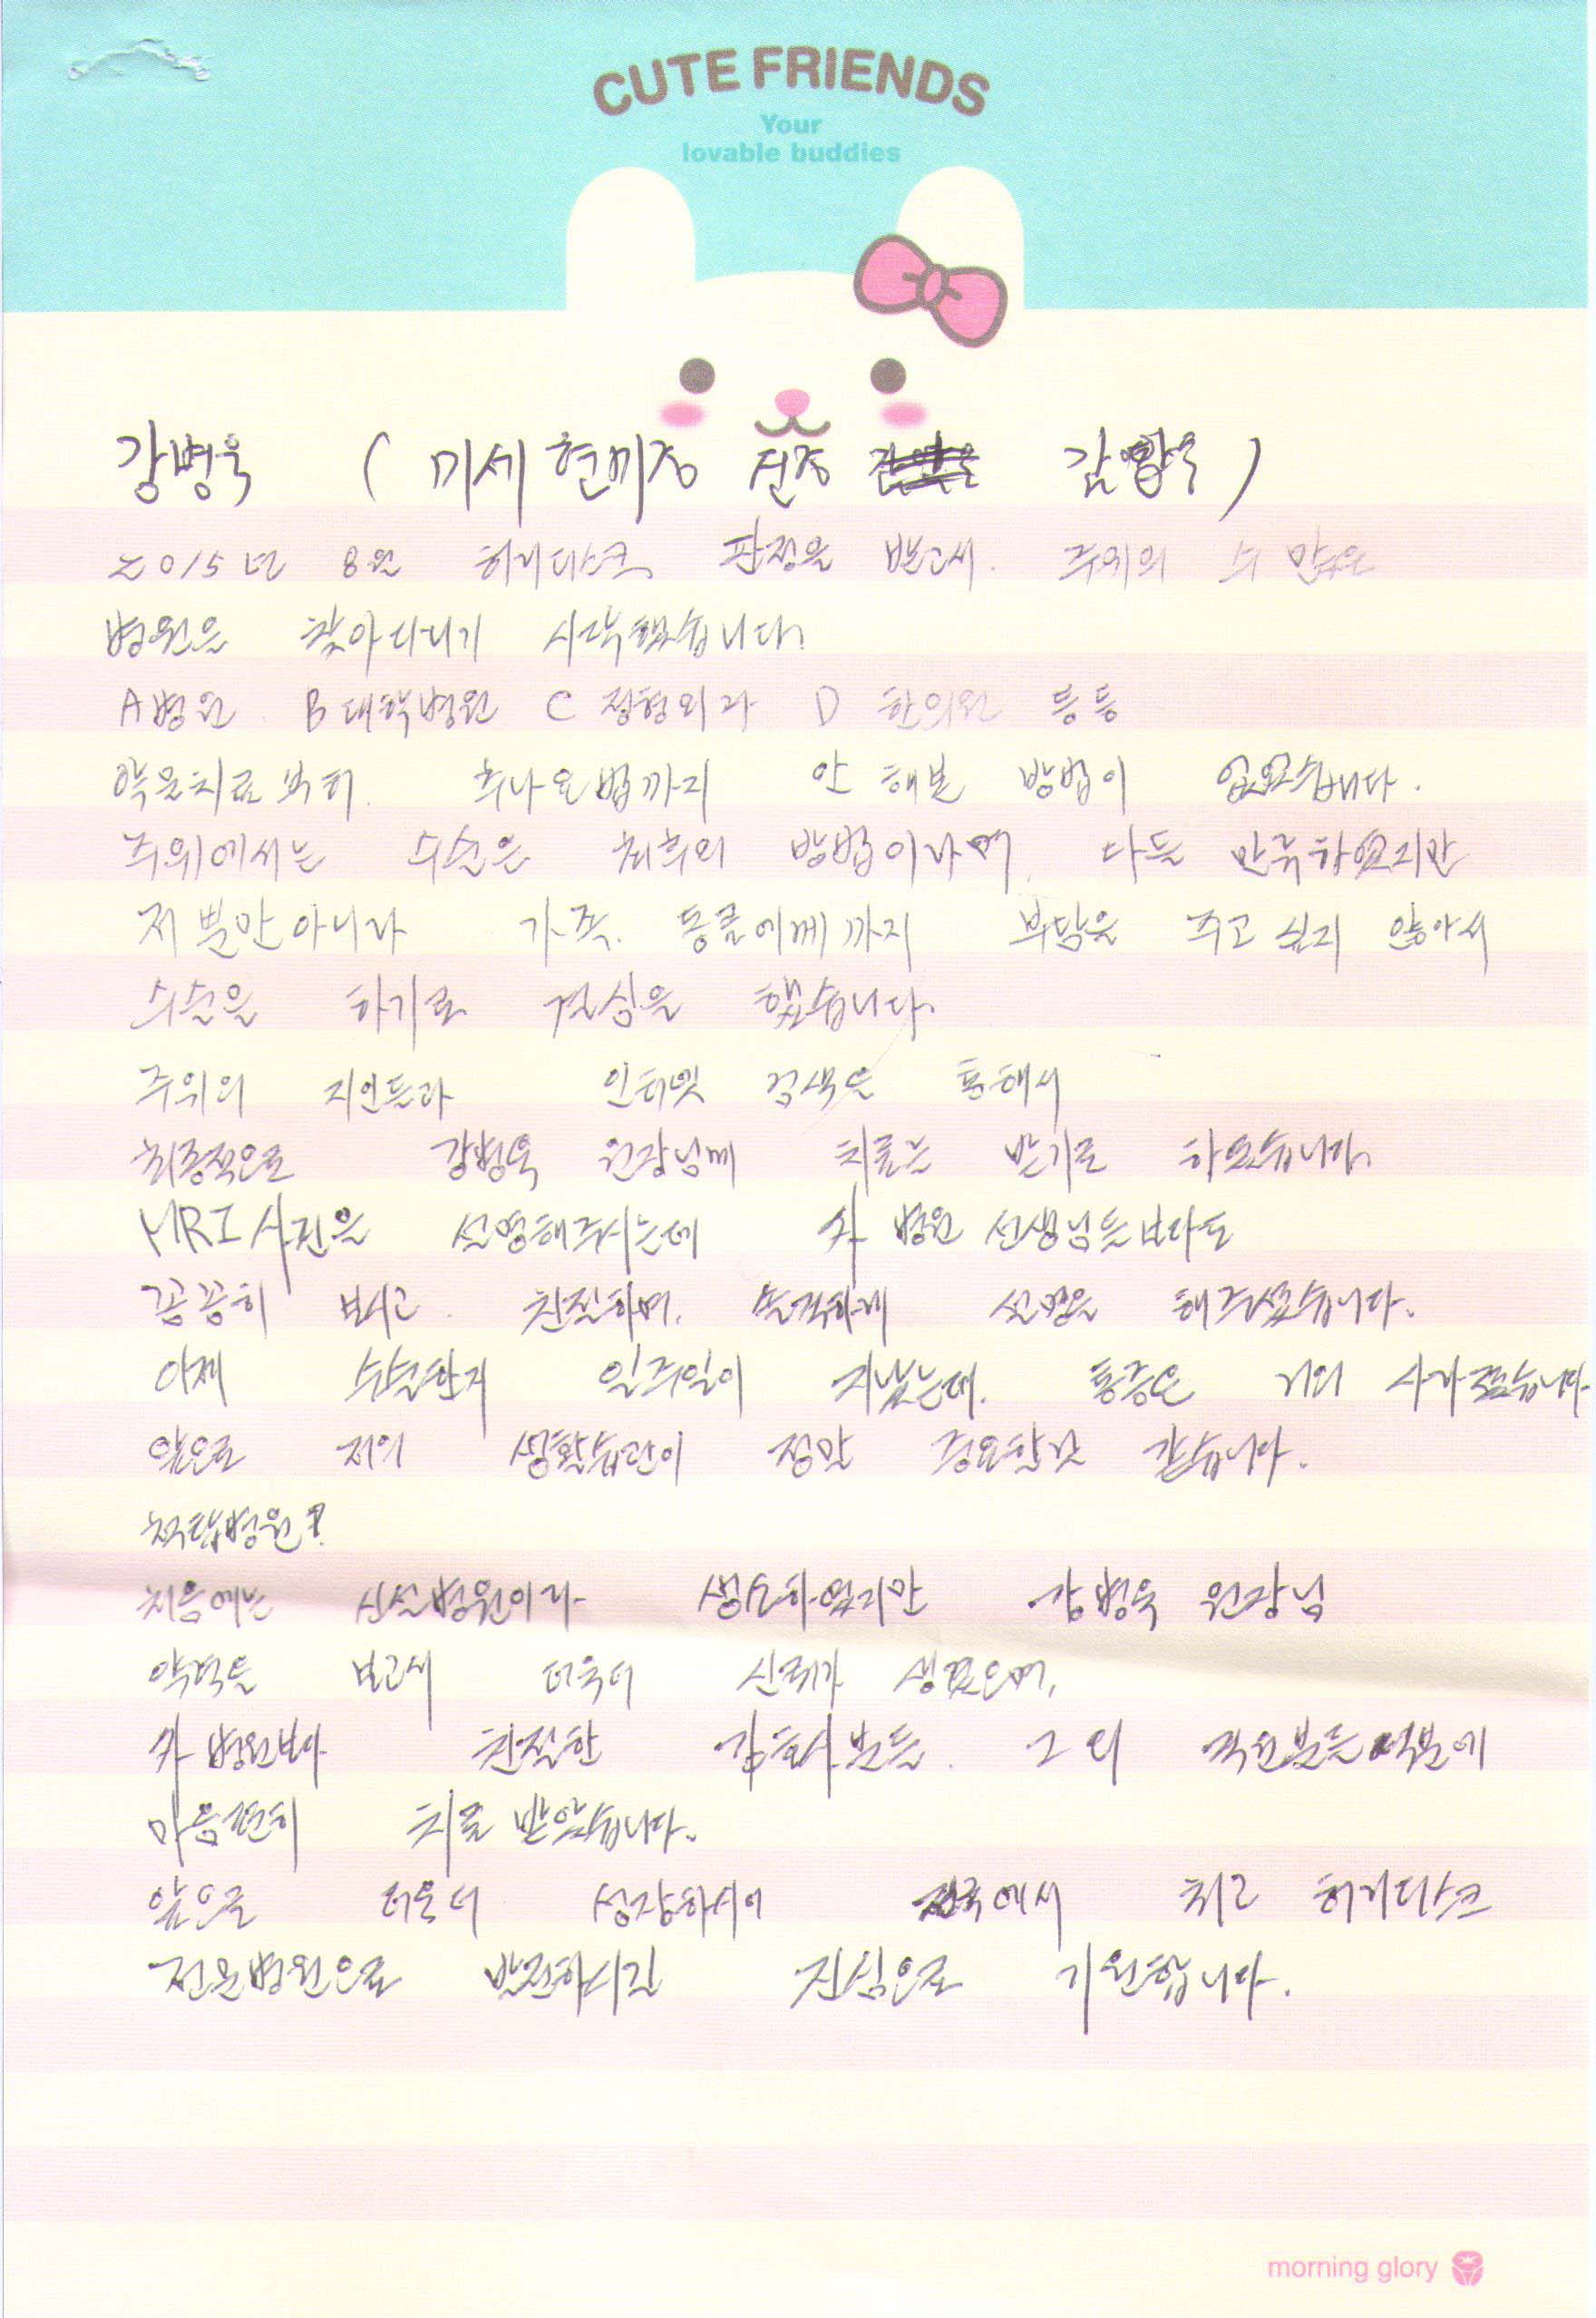 CUTE FRIENDS
Your
lovable buddies
강병욱 ( 미세현미경 선경 )
2015년 8월 허리디스크 판정을 받고서. 주위의 수 많은
병원을 찾아다니기 시작했습니다.
A병원 B대학병원 C 정형외과 D 한의원 등등
약물치료부터. 추나요법까지 안 해본 방법이 없었습니다.
주위에서는 수술은 최후의 방법이라며, 다들 만류하였지만
저 뿐만 아니라 가족. 동료에게까지 부담을 주고 싶지 않아서
수술을 하기로 결심을 했습니다.
주위의 지인들과 인터넷 검색을 통해서
최종적으로 강병욱 원장님께 치료를 받기로 하였습니다.
MRI 사진을 설명해주시는데 타 병원 선생님들보다도
꼼꼼히 보시고. 친절하며. 솔직하게 설명을 해주셨습니다.
이제 수술한지 일주일이 지났는데. 통증은 거의 사라졌습니다.
앞으로 저의 생활습관이 정말 중요한것 같습니다.
척탑병원?
처음에는 신설병원이라 생소하였지만 강병욱 원장님
약력을 보고서 더욱더 신뢰가 생겼으며,
타 병원보다 친절한 간호사분들. 그 외 직원분들 덕분에
마음편히 치료 받았습니다.
앞으로 더욱더 성장하시어 전국에서 최고 허리디스크
전문병원으로 발전하시길 진심으로 기원합니다.
morning glory